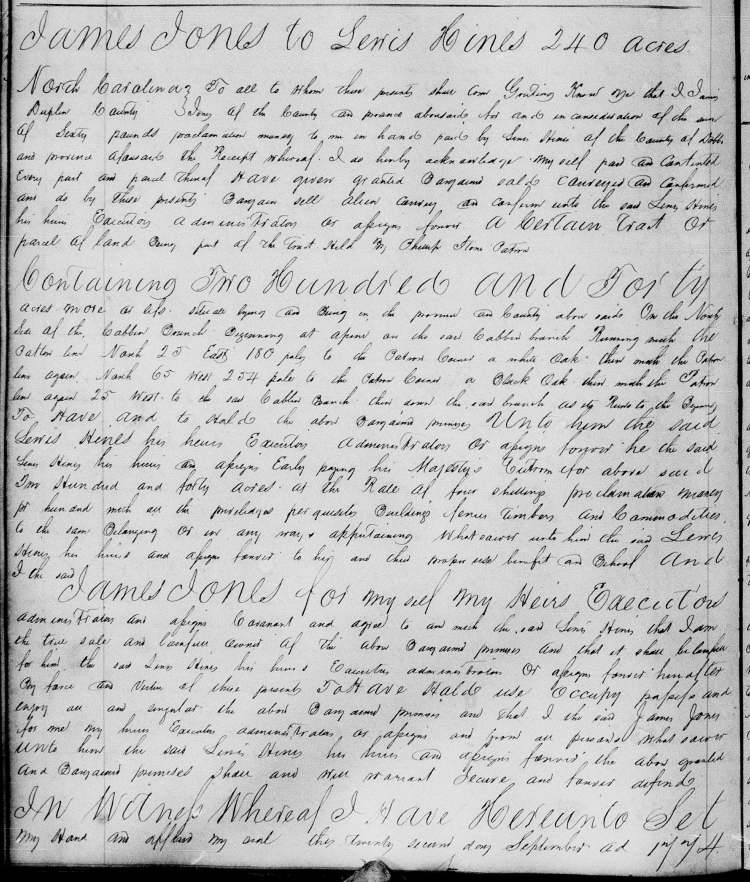 James Jones to Lewis Hines 240 acres
North Carolina } To all to whom these presents shall come Greeting Know ye that I James
Duplin County } Jones of the County and province aforesaid for and in consideration of the sum
of Sixty pounds proclamation money to me in hand paid by Lewis Hines of the County of Dobbs
and province aforesaid the Receipt whereof I do hereby acknowledge my self paid and Contented
Every part and parcel thereof Have given granted Bargained sold conveyed and confirmed
and do by these presents Bargain sell alien convey and confirm unto the said Lewis Hines
his heirs Executors administrators or assigns forever a Certain Tract or
parcel of land Being part of the Tract Held By Phillip Patron
Containing Two Hundred and Forty
acres more or less situate lying and Being in the province and County above said On the North
side of the Cabbin Branch Beginning at a pine on the said Cabbin branch Running with the
Patten line North 25 East 180 poles to the Patron Corner a white Oak then with the Patron
line again North 65 West 254 pole to the Patron Corner a Black Oak then with the Patron
line again 25 West to the said Cabbin Branch then down the said branch as it Runs to the Begining
To Have and to Hold the above Bargained premises Unto him the said
Lewis Hines his heirs Executors Administrators Or assigns forever he the said
Lewis Hines his heirs and assigns Early paying his Majestys for above said
Two Hundred and forty acres at the Rate of four shillings proclamation money
pr hundred with all the priviledges perquisites Buildings fences Timbers and Commodities
to the same Belonging Or in any ways appertaining whatsoever unto him the said Lewis
Hines his heirs and assigns forever to his and their proper use benefit and Behoof And
I the said
James Jones for my self My Heirs Executors
administrators and assigns Covenant and agree to and with the said Lewis Hines that I am
the true sole and lawfull owner of the above Bargained premises and that it shall be lawfull
for him the said Lewis Hines his heirs Executors administrators Or assigns forever hereafter
By force and Virtue of these presents To Have Hold use Occupy possess and
enjoy all and singular the above Bargained premises and that I the said James Jones
for me my heirs Executors administrators or assigns and from all persons whatsoever
unto him the said Lewis Hines his heirs and assigns forever the above granted
and Bargained premises shall and will warrant Secure and forever defend
In Witness Whereof I Have Hereunto Set
my Hand and affixed my seal this twenty second day September ad 1774